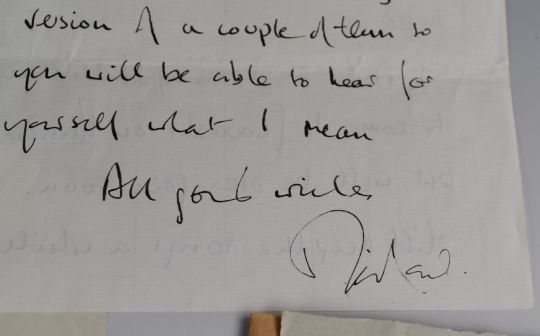 version of a couple of them so
you will be able to hear for
yourself what I mean
All good wishes
Richard.